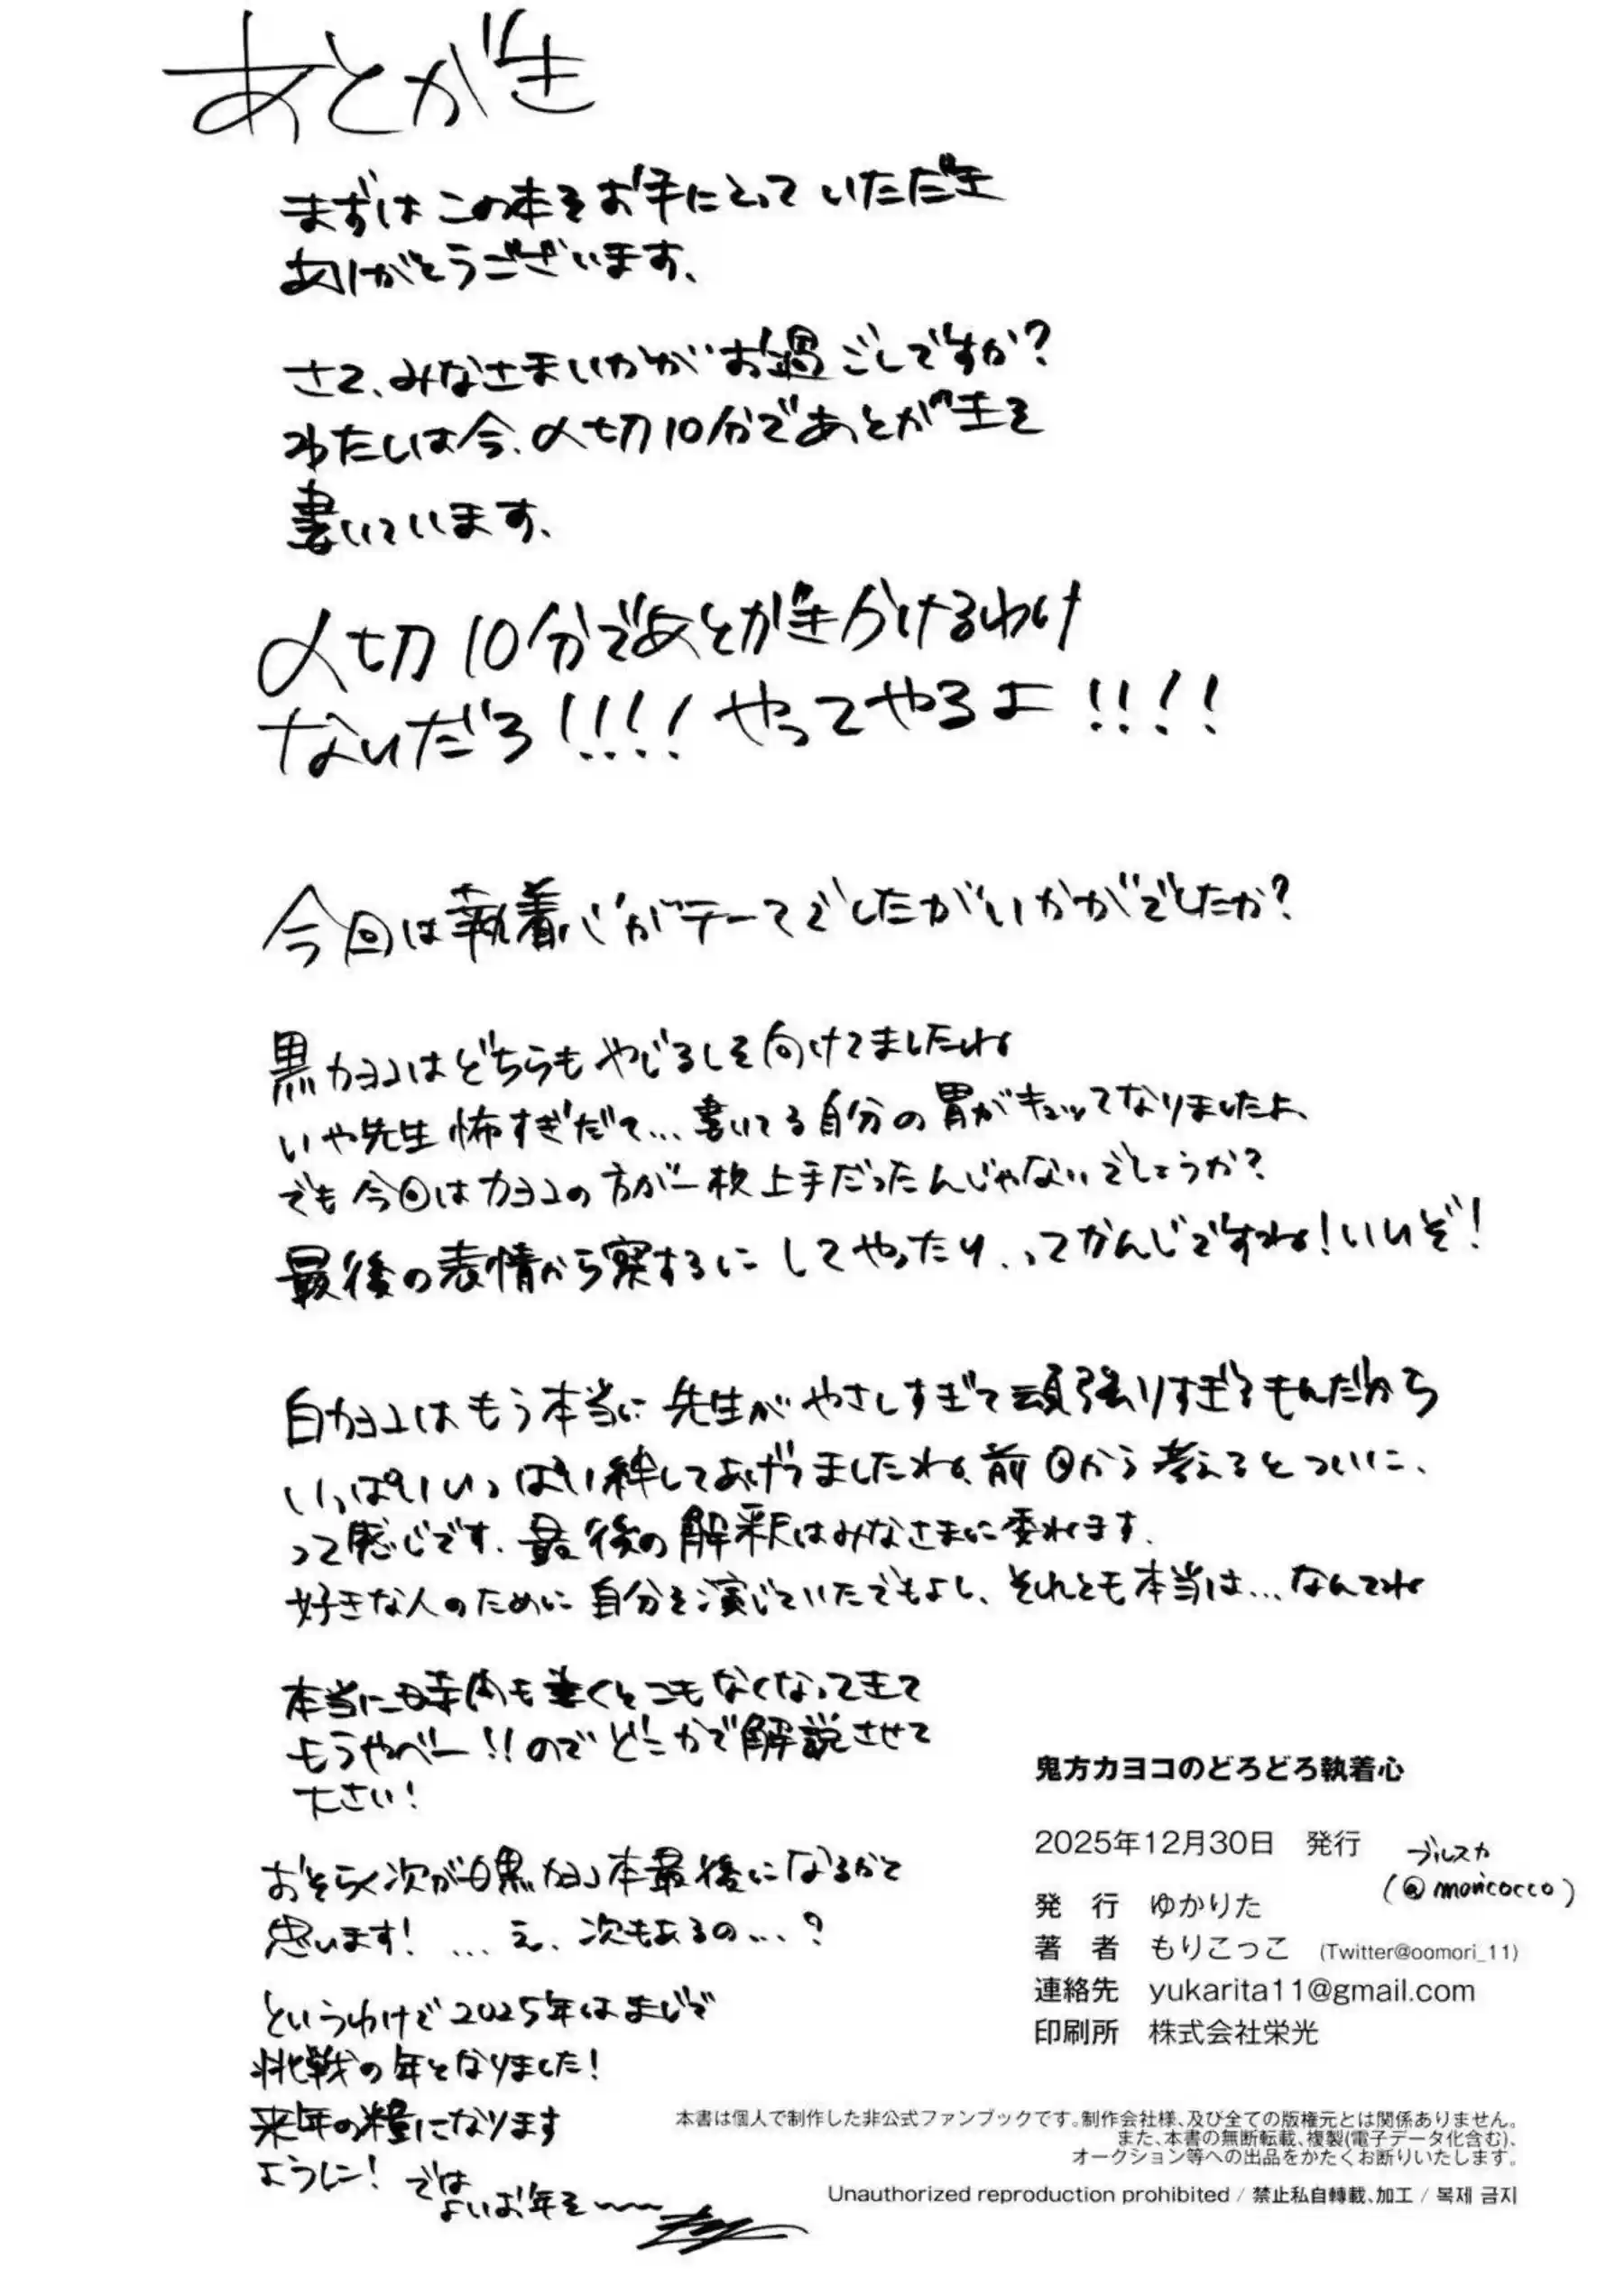 あとがき
まずは この本を お手にとって いただき
ありがとうございます、
さて、みなさまいかがお過ごしですか?
わたしは今、〆切10分であとがきを
書いています、
〆切10分であとがきかけるわけ
ないだろ!!!!やってやるよ!!!!
今回は執着心がテーマでしたがいかがでしたか?
黒カヨコはどちらもやじるしを向けてましたね
いや先生 怖すぎだって…書いてる自分の胃がキュッてなりましたよ、
でも今回はカヨコの方が一枚上手だったんじゃないでしょうか?
最後の表情から察するに してやったり、ってかんじですね!いいぞ!
白カヨコはもう本当に 先生がやさしすぎて頑張りすぎるもんだから
いっぱいいっぱいしてあげてましたね、前回から考えるとついに、
って感じです、最後の解釈はみなさまに委ねます、
好きな人のために 自分を演じていたでもよし、それとも本当は…なんてね
本当に時間も書くとこもなくなってきて
もうやべー!!のでどこかで解説させて
下さい!
おそらく次が白黒カヨコ本最後になるかと
思います! …え、次もあるの…?
というわけで2025年はまじで
挑戦の年となりました!
来年の糧になります
ように! では
よいお年を〜〜
鬼方カヨコのどろどろ執着心
2025年12月30日 発行
ブルスカ
(@moricocco)
発 行 ゆかりた
著 者 もりこっこ (Twitter@oomori_11)
連絡先 yukarita11@gmail.com
印刷所 株式会社栄光
本書は個人で制作した非公式ファンブックです。制作会社様、及び全ての版権元とは関係ありません。
また、本書の無断転載、複製(電子データ化含む)、
オークション等への出品をかたくお断りいたします。
Unauthorized reproduction prohibited / 禁止私自轉載、加工 / 복제 금지